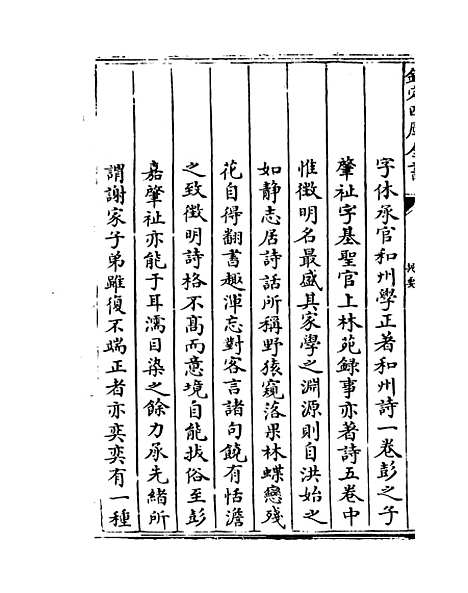 欽定四庫全書
提要
字休承官和州學正著和州詩一卷彭之子
肇祉字基聖官上林苑録事亦著詩五卷中
惟徴明名最盛其家學之淵源則自洪始之
如静志居詩話所稱野猿窺落果林蝶戀殘
花自得翻書趣渾忘對客言諸句饒有恬澹
之致徴明詩格不髙而意境自能拔俗至彭
嘉肇祉亦能于耳濡目染之餘力承先緒所
謂謝家子弟雖復不端正者亦奕奕有一種